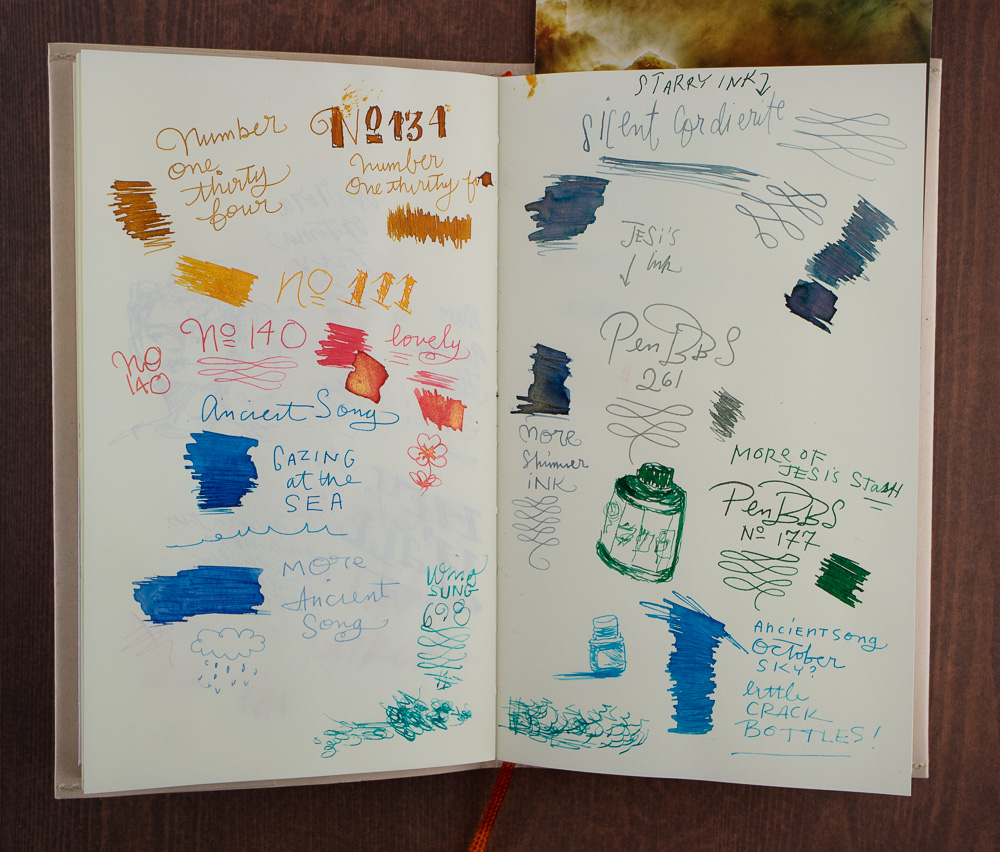 Number
one
thirty
four
Nº 134
Number
One thirity fo
nº 111
Nº 140
lovely
NO
140
Ancient Song
GAZING
at the
SEA
MORE
Ancient
Song
Wing
SUNG
698
STARRY INK
Silent Cordierite
JESi's
ink
PenBBS
261
More
Shimmer
iNK
MORE OF
JESi's STASH
PenBBS
Nº 177
ANCIENT SONG
October
SKY?
little
CRACK
BOTTLES!